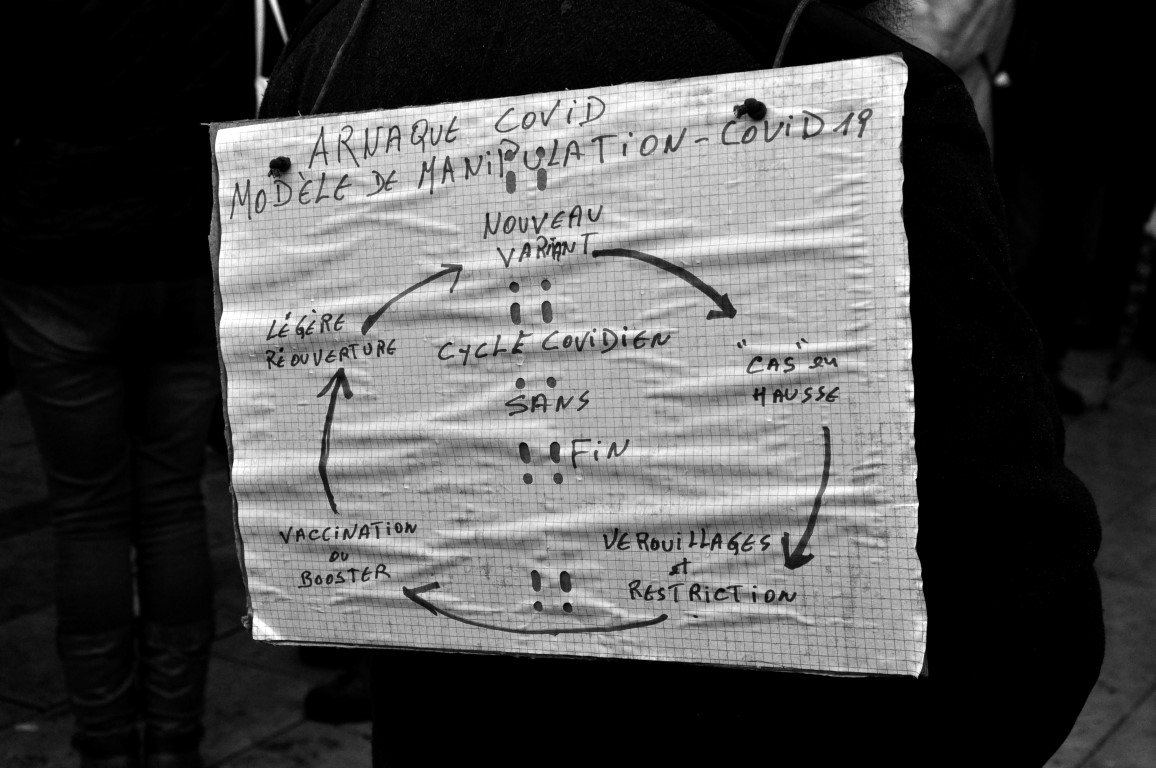 ARNAQUE COViD
MODÈLE DE MANiPULATiON - COViD 19
NOUVEAU
VARiANT
LÉGÈRE
RÉOUVERTURE
CYCLE COViDiEN
"CAS" en
HAUSSE
SANS
FiN
VACCiNATiON
OU
BOOSTER
VEROUiLLAGES
et
RESTRiCTiON